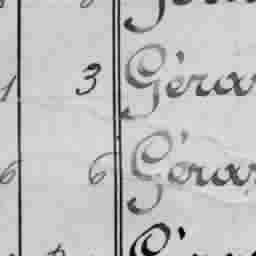 1 3 Gérar
6 6 Gérar